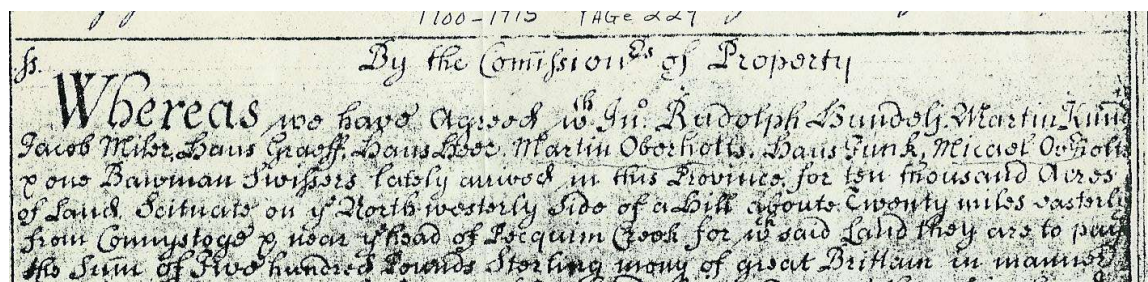 1700-1715 PAGE 227
ss.
By the Com̄ission.rs of Property
Whereas we have Agreed wth Jno. Rudolph Bundely Martin Kund
Jacob Miler, Hans Graeff, Hans Heer, Martin Oberholts, Hans Funk, Micael
& one Bawman Swissers lately arived in this Province for ten thousand Acres
of Land Scituate on ye North westerly side of a Hill aboute Twenty miles easterly
from Connystoge & near ye head of Pecquin Creek for wch said Land they are to pay
the Sum̄ of Five hundred Pounds Sterling mony of great Brittain in manner